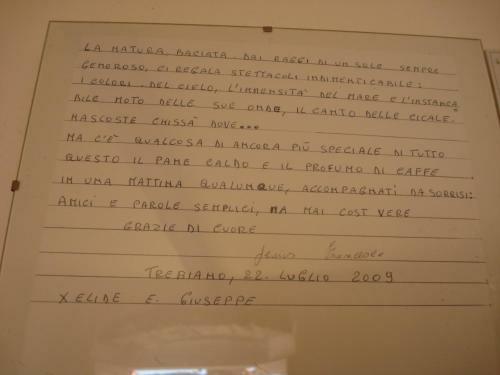 LA NATURA BACIATA DAI RAGGI DI UN SOLE SEMPRE
GENEROSO, CI REGALA STETTACOLI INDIMENTICABILE:
I COLORI DEL CIELO, L'IMMENSITA' DEL MARE E L'INSTANCA
BILE MOTO DELLE SUE ONDE, IL CANTO DELLE CICALE.
NASCOSTE CHISSÀ DOVE...
MA C'È QUALCOSA DI ANCORA PIÙ SPECIALE DI TUTTO
QUESTO IL PANE CALDO E IL PROFUMO DI CAFFE
IN UNA MATTINA QUALUNQUE, ACCOMPAGNATI DA SORRISI:
AMICI E PAROLE SEMPLICI, MA MAI COSI VERE
GRAZIE DI CUORE
TREBIANO, 22. LUGLIO 2009
X ELIDE E. GIUSEPPE